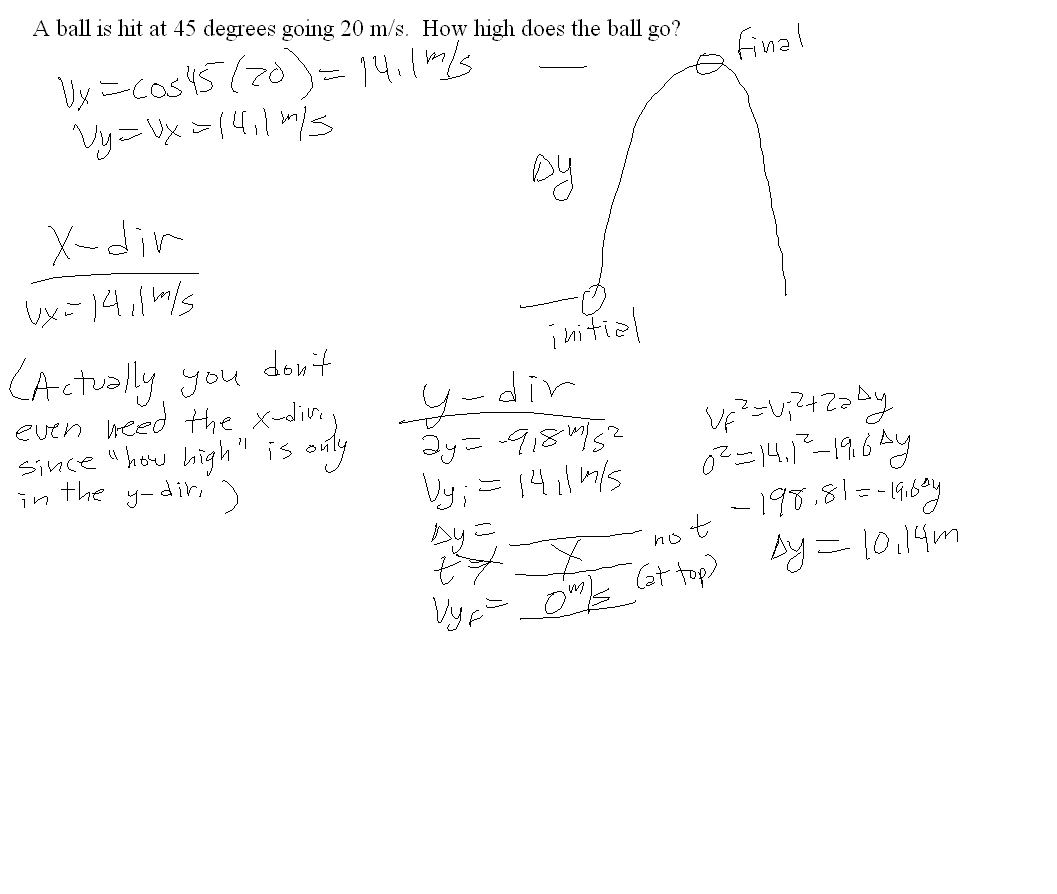 A ball is hit at 45 degrees going 20 m/s.  How high does the ball go?
Vx = cos45(20) = 14.1 m/s
Vy = Vx = 14.1 m/s
final
Δy
initial
x-dir
Vx = 14.1 m/s
(Actually you don't
even need the x-dir,
since "how high" is only
in the y-dir.)
y-dir
ay = -9.8 m/s²
Vyi = 14.1 m/s
Δy =
t = X no t
Vyf = 0 m/s (at top)
Vf² = Vi² + 2aΔy
0² = 14.1² - 19.6Δy
-198.81 = -19.6Δy
Δy = 10.14m